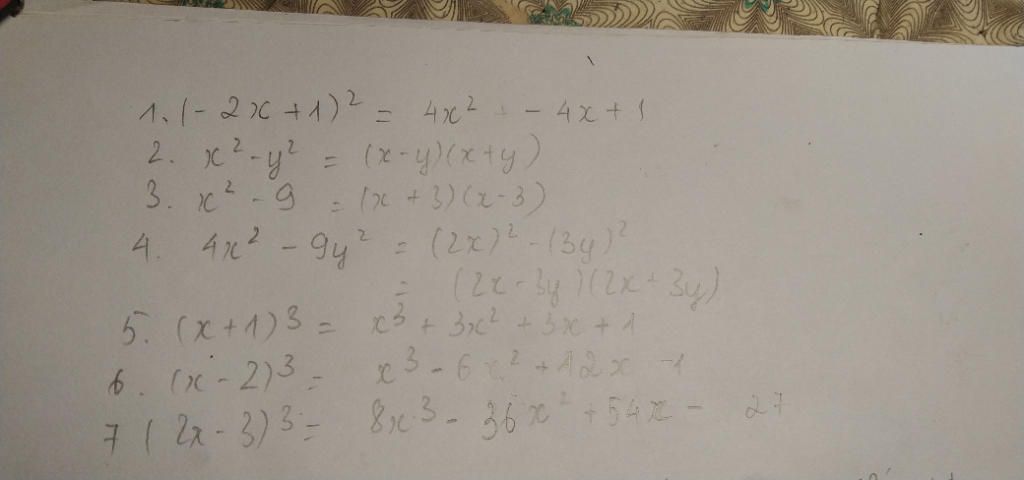 1. (-2x+1)² = 4x² - 4x+1
2. x²-y² = (x-y)(x+y)
3. x² - 9 = (x+3)(x-3)
4. 4x² - 9y² = (2x)² - (3y)²
= (2x-3y)(2x+3y)
5. (x+1)3 = x3 + 3x² + 3x+1
6. (x-2)3 = x3 - 6x² + 12x -1
7 (2x-3)3 = 8x3 - 36x² + 54x - 27